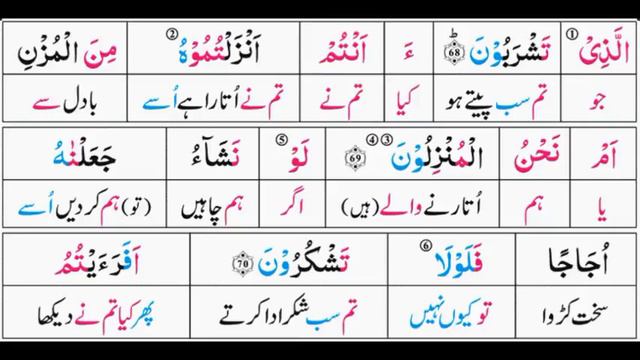 الَّذِیْ ① تَشْرَبُوْنَ ﴿68﴾ ءَ اَنْتُمْ اَنْزَلْتُمُوْهُ ② مِنَ الْمُزْنِ
جو تم سب پیتے ہو کیا تم نے تم نے اُتارا ہے اُسے بادل سے
اَمْ نَحْنُ الْمُنْزِلُوْنَ ③ ④ ﴿69﴾ لَوْ ⑤ نَشَآءُ جَعَلْنٰهُ
یا ہم اُتارنے والے (ہیں) اگر ہم چاہیں (تو) ہم کر دیں اُسے
اُجَاجًا فَلَوْلَا ⑥ تَشْكُرُوْنَ ﴿70﴾ اَفَرَءَیْتُمُ
سخت کڑوا تو کیوں نہیں تم سب شکر ادا کرتے پھر کیا تم نے دیکھا